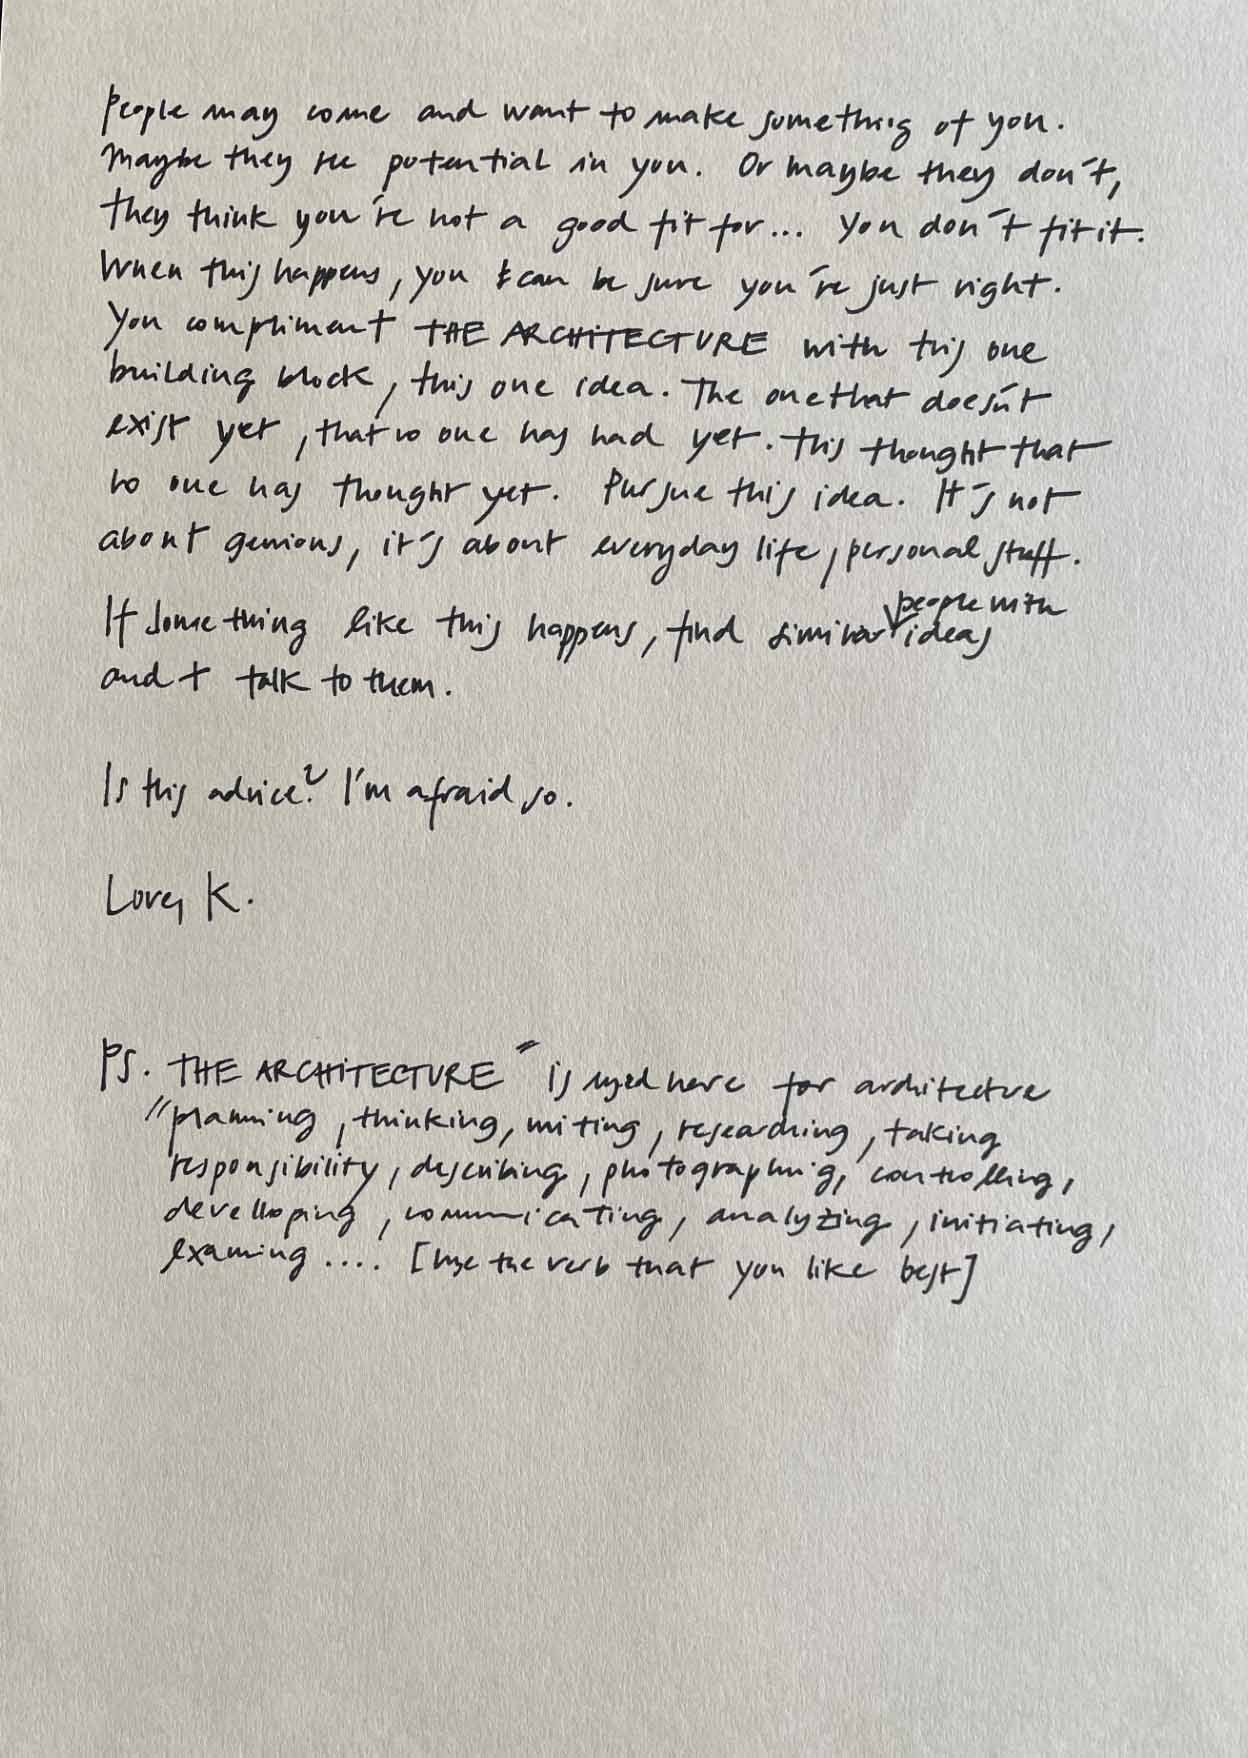 People may come and want to make something of you.
Maybe they see potential in you. Or maybe they don't,
they think you're not a good fit for... you don't fit it.
When this happens, you can be sure you're just right.
You compliment THE ARCHITECTURE with this one
building block, this one idea. The one that doesn't
exist yet, that no one has had yet. This thought that
no one has thought yet. Pursue this idea. It's not
about genious, it's about everyday life, personal stuff.
If something like this happens, find similar people with ideas
and talk to them.
Is this advice? I'm afraid so.
Love, K.
PS. THE ARCHITECTURE" is used here for architecture
"planning, thinking, writing, researching, taking
responsibility, describing, photographing, controlling,
developing, communicating, analyzing, initiating,
examing .... [use the verb that you like best]